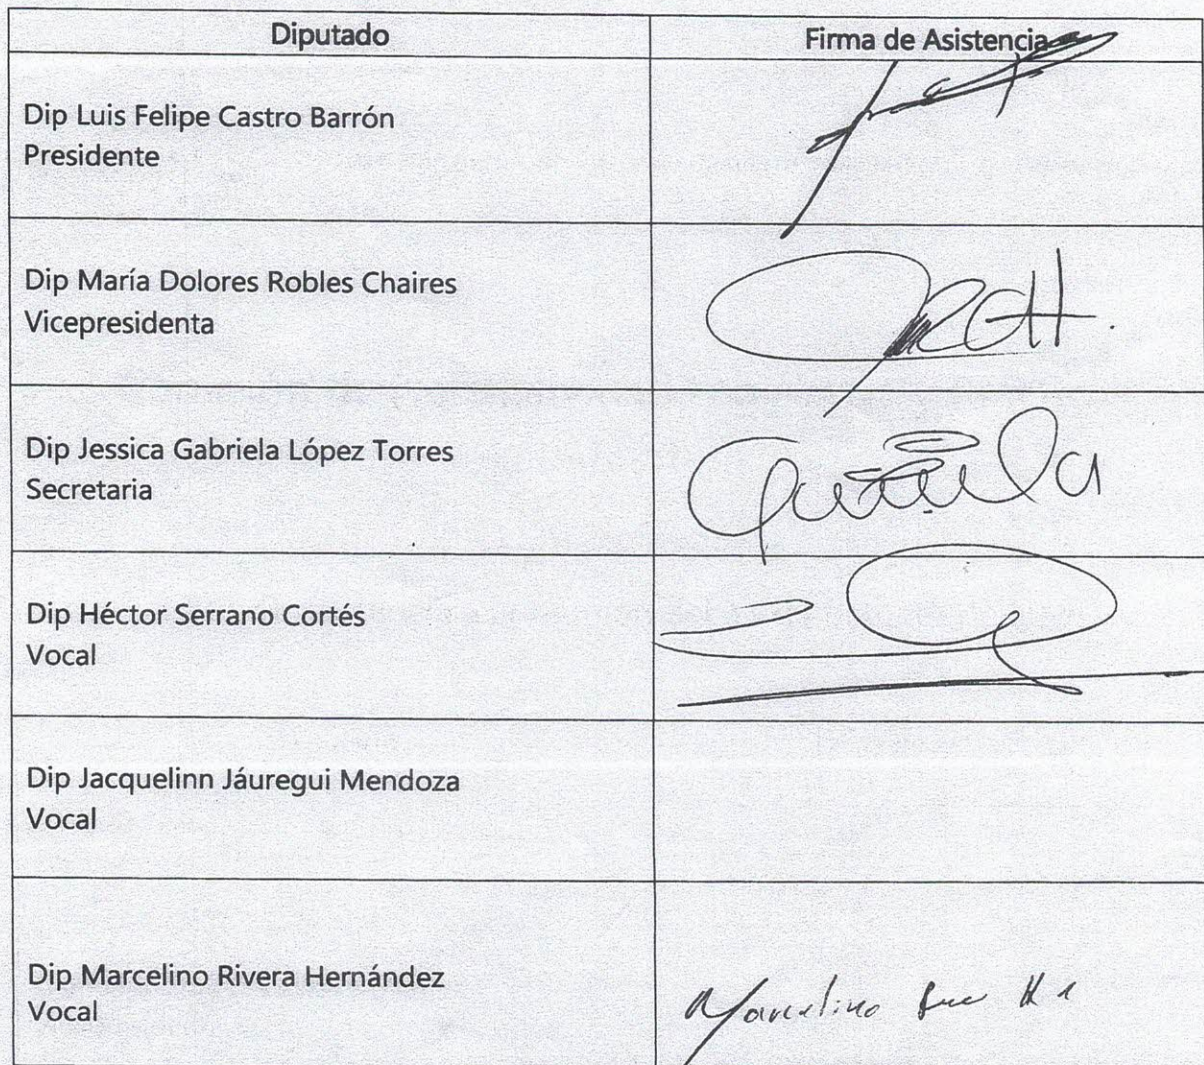 Diputado
Firma de Asistencia
Dip Luis Felipe Castro Barrón
Presidente
Dip María Dolores Robles Chaires
Vicepresidenta
Dip Jessica Gabriela López Torres
Secretaria
Dip Héctor Serrano Cortés
Vocal
Dip Jacquelinn Jáuregui Mendoza
Vocal
Dip Marcelino Rivera Hernández
Vocal
Marcelino